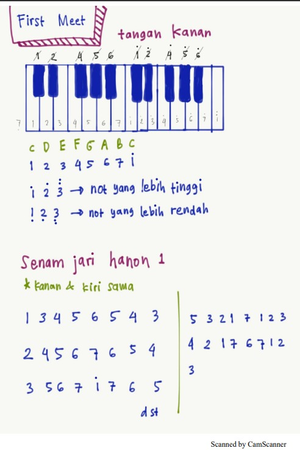 First Meet
tangan kanan
1 2 4 5 6 1̇ 2̇ 4̇ 5̇ 6̇
7 1 2 3 4 5 6 7 1̇ 2̇ 3̇ 4̇ 5 6 7 i
C D E F G A B C
1 2 3 4 5 6 7 i
1̇ 2̇ 3̇ → not yang lebih tinggi
1̣ 2̣ 3̣ → not yang lebih rendah
Senam jari hanon 1
* Kanan & kiri sama
1 3 4 5 6 5 4 3
2 4 5 6 7 6 5 4
3 5 6 7 i 7 6 5
dst
5 3 2 1 7 1 2 3
4 2 1 7 6 7 1 2
3
Scanned by CamScanner